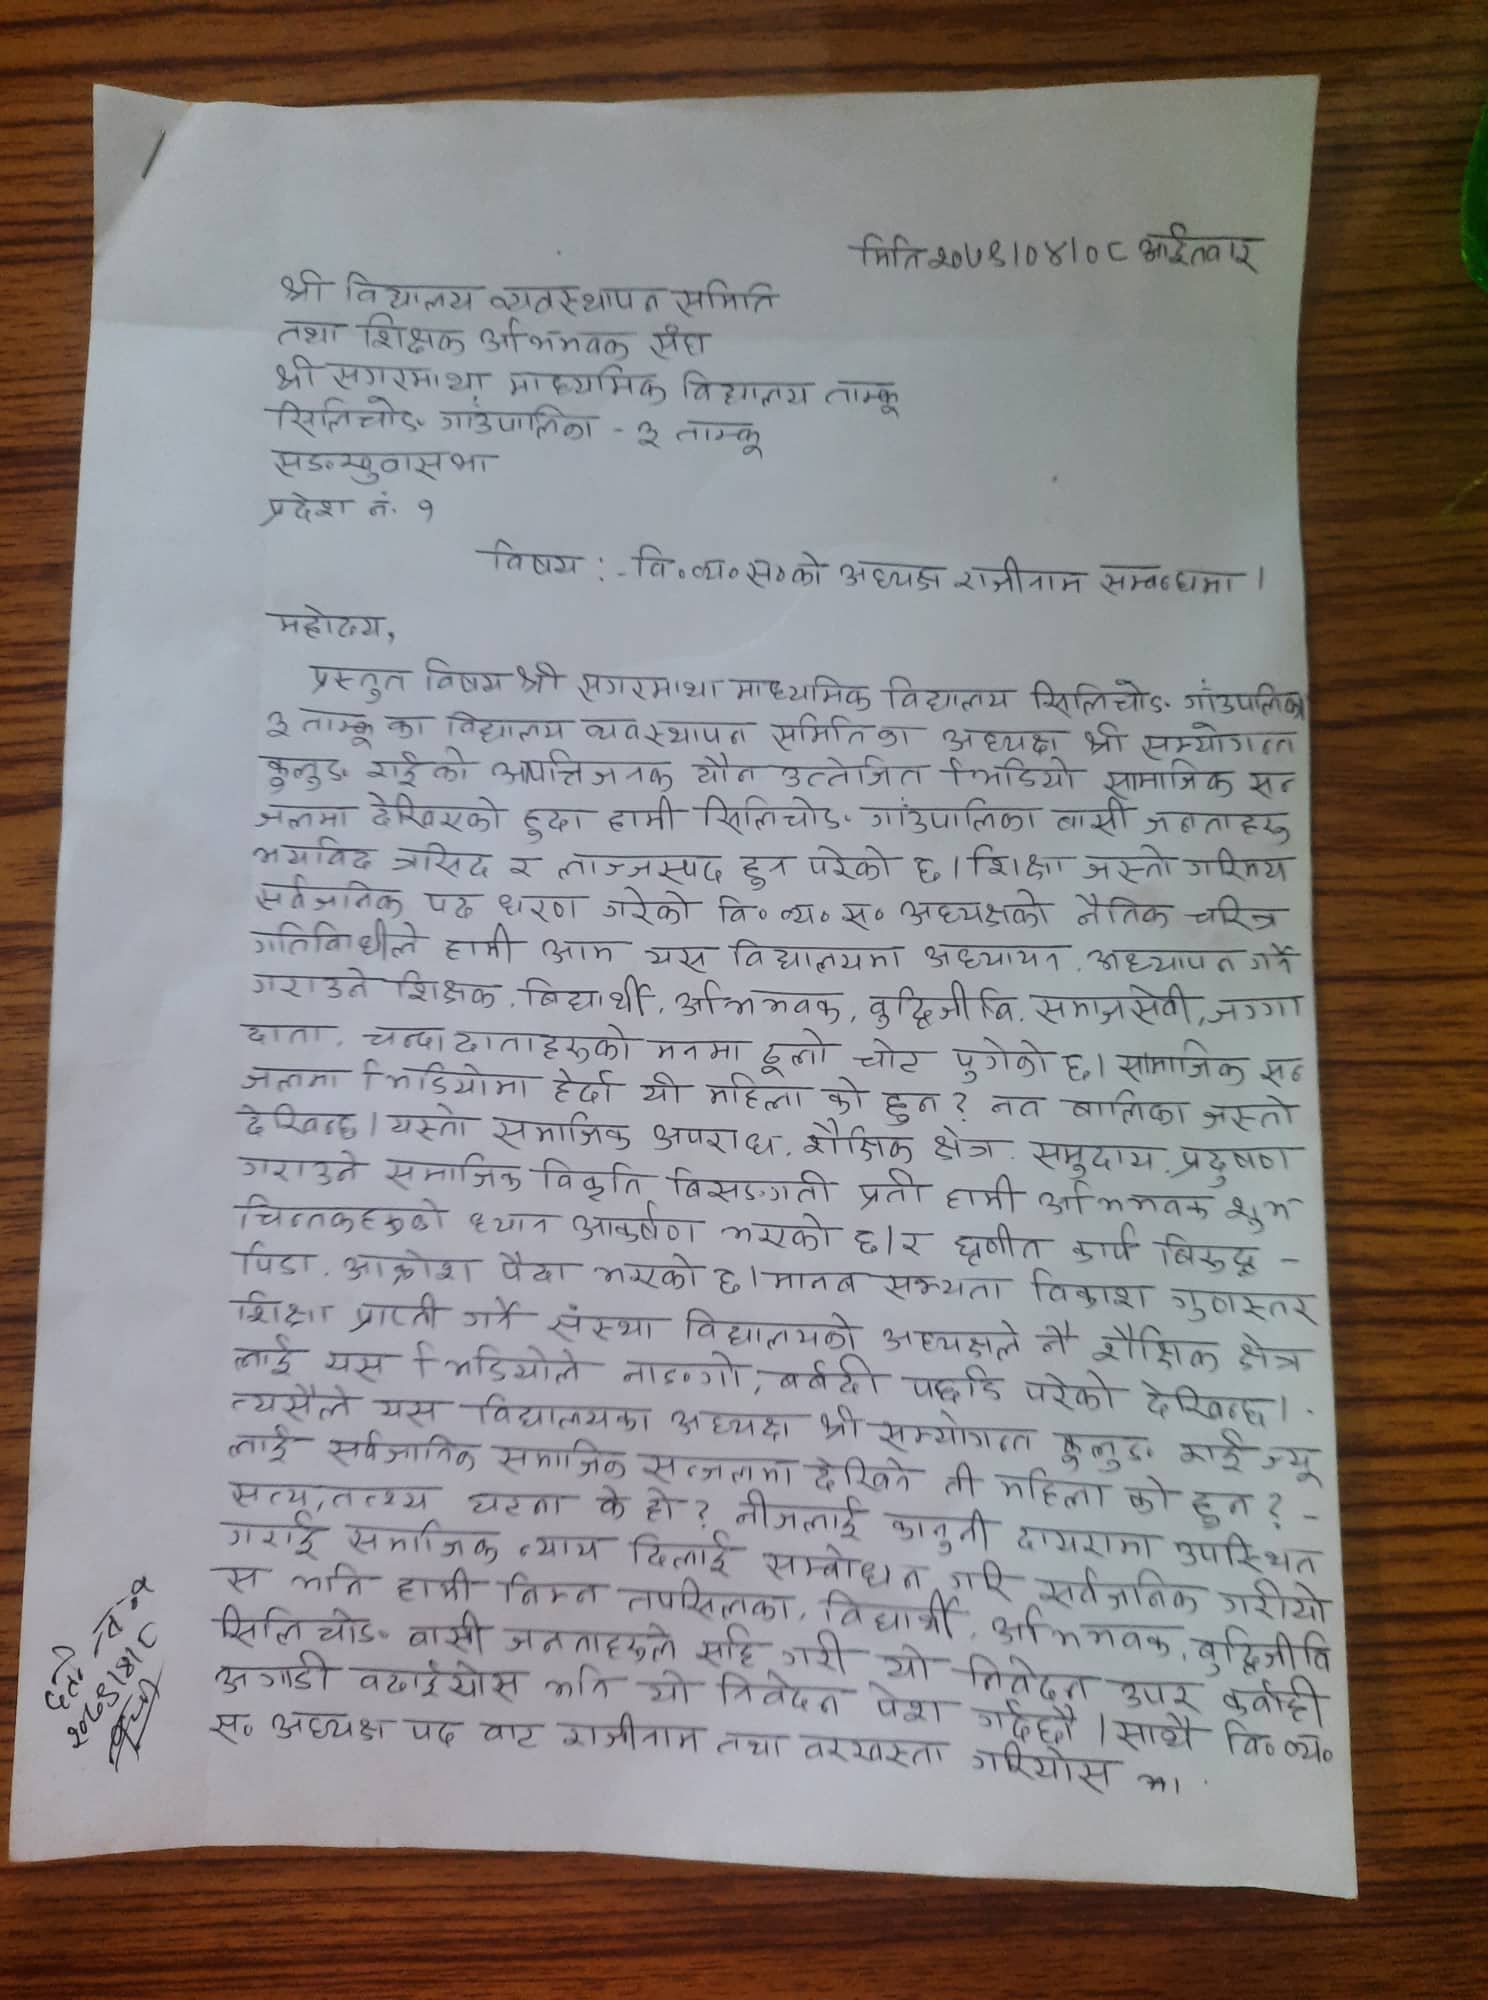 मिति २०७९।०४।०८ आईतवार
श्री विद्यालय व्यवस्थापन समिति
तथा शिक्षक अभिभवक संघ
श्री सगरमाथा माध्यमिक विद्यालय ताम्कू
सिलिचोङ गांउपालिका - ३ ताम्कू
सङखुवासभा
प्रदेश नं. १
विषय :- वि०व्य०स०को अध्यक्ष राजीनाम सम्बन्धमा ।
महोदय,
प्रस्तुत विषय श्री सगरमाथा माध्यमिक विद्यालय सिलिचोङ गांउपालिका
३ ताम्कू का विद्यालय व्यवस्थापन समितिका अध्यक्ष श्री सम्योगन्त
कुलुङ राईको आपत्तिजनक यौन उत्तेजित भिडियो सामाजिक सन
जलमा देखिएको हुदा हामी सिलिचोङ गांउपालिका बासी जनताहरु
भयविद त्रसिद र लाज्जस्पद हुन परेको छ। शिक्षा जस्तो गरिमय
सर्वजानिक पद धरण गरेको वि० व्य० स० अध्यक्षको नैतिक चरित्र
गतिविधीले हामी आम यस विद्यालयमा अध्यायन, अध्यापन गर्ने
गराउने शिक्षक, बिद्यार्थी, अभिभवक, वुद्धिजीबि, समाजसेवी, जग्गा
दाता, चन्दादाताहरुको मनमा ठूलो चोट पुगेको छ। सामाजिक सन
जलमा भिडियोमा हेर्दा यी महिला को हुन? नत बालिका जस्तो
देखिन्छ। यस्तो समाजिक अपराध, शैक्षिक क्षेत्र, समुदाय, प्रदुषण
गराउने समाजिक विकृति बिसङगती प्रती हामी अभिभवक शुभ
चिन्तकहरुको ध्यान आकर्षण भएको छ। र घृणीत कार्य बिरुद्ध -
पिडा, आक्रोश पैदा भएको छ। मानब सभ्यता विकाश गुणस्तर
शिक्षा प्राप्ती गर्ने संस्था विद्यालयको अध्यक्षले नै शैक्षिक क्षेत्र
लाई यस भिडियोले नाङगो, बर्बदी पछडि परेको देखिन्छ।
त्यसैले यस विद्यालयका अध्यक्ष श्री सम्योगन्त कुलुङ राई ज्यू
लाई सर्वजानिक समाजिक सन्जलमा देखिने ती महिला को हुन? -
सत्य, तत्थ्य घटना के हो? नीजलाई कानुनी दायरामा उपस्थित
गराई समाजिक न्याय दिलाई सम्बोधन गरि सर्वजनिक गरीयो
स भनि हामी निम्न तपसिलका, विद्यार्थी, अभिभवक, वुद्धिजीवि
सिलिचोङ बासी जनताहरुले सहि गरी यो निवेदन उपर कुर्वाही
अगाडी वढाईयोस भनि यो निवेदन पेश गर्दछौ। साथै वि० व्य०
स० अध्यक्ष पद वाट राजीनाम तथा वरखास्ता गरियोस भ।
दर्ता
२०७९।४।८